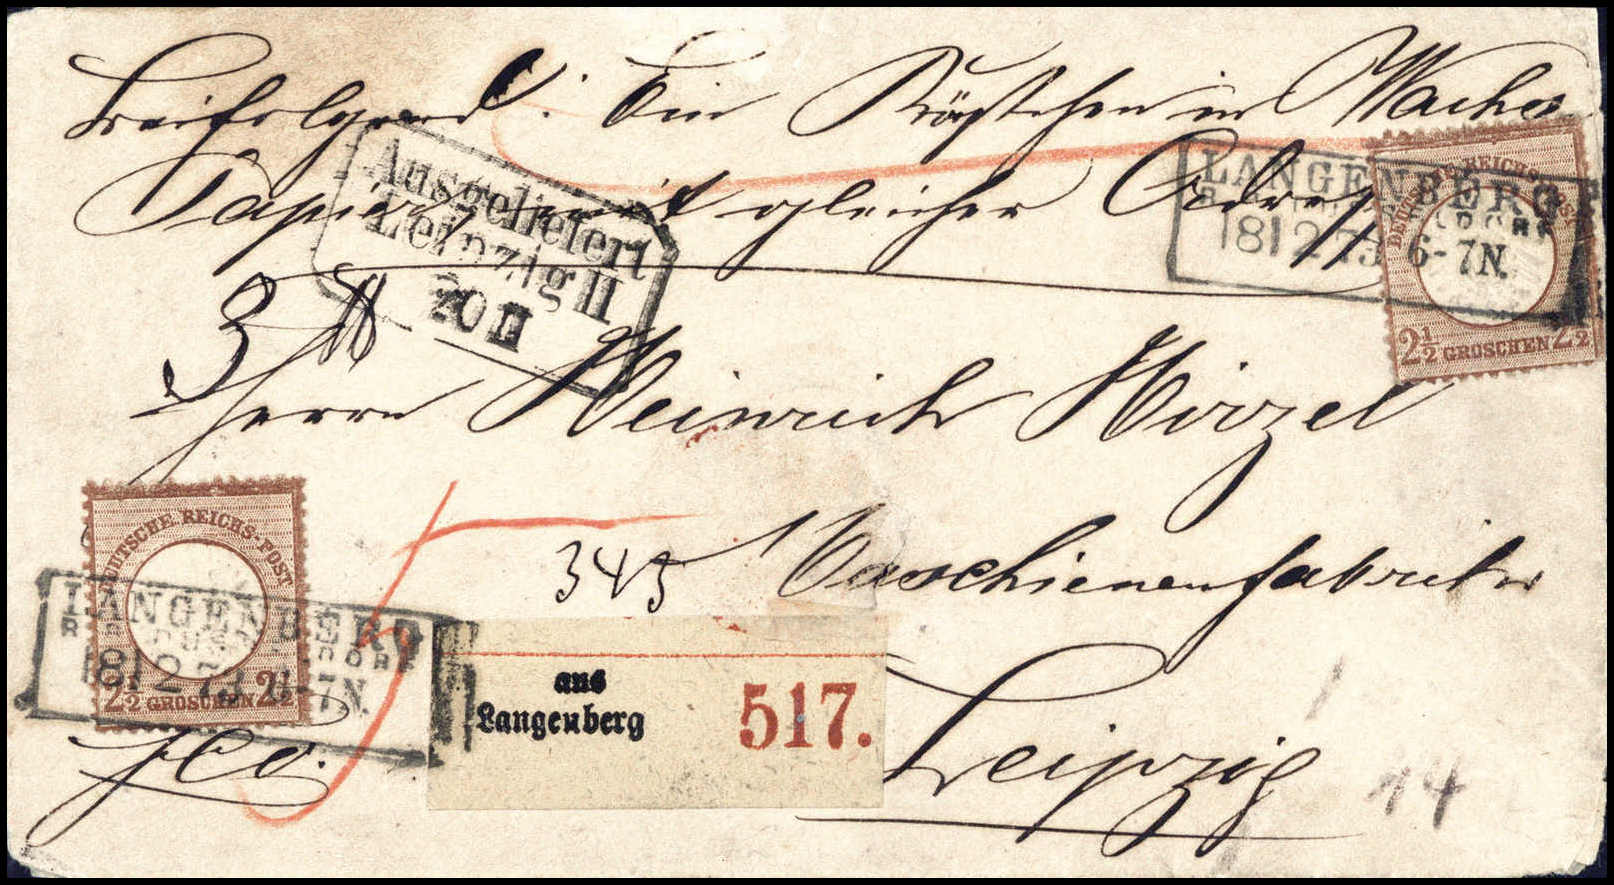 Beifolgend: Ein Kästchen in Wachs
Papier mit gleicher Adresse
Ausgeliefert
Leipzig II
20 II
LANGENBERG
18 2 73 6-7N.
DEUTSCHE REICHS-POST
2½ GROSCHEN 2½
3 ℔
Herrn Heinrich Hirzel
345 Maschienenfabrik
DEUTSCHE REICHS-POST
2½ GROSCHEN 2½
LANGENBERG
R. B. DÜSSELDORF
18 2 73 6-7N.
aus
Langenberg
517.
fco.
Leipzig
14